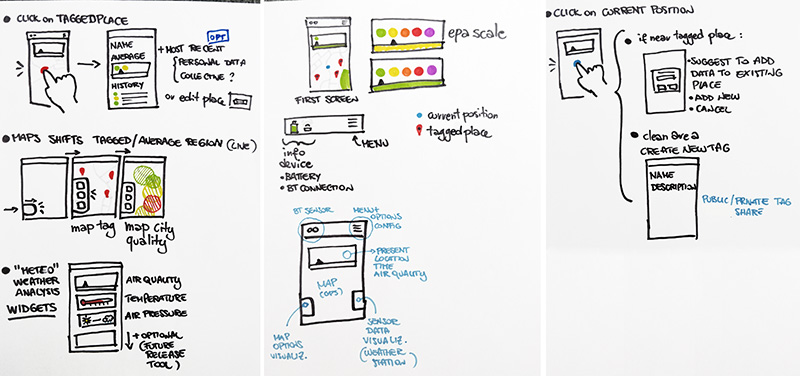 CLICK ON TAGGED PLACE
OPT
NAME
AVERAGE
HISTORY
+ MOST RECENT
PERSONAL DATA
COLLECTIVE?
or edit place
MAPS SHIFTS TAGGED/AVERAGE REGION (LIVE)
map tag
map city
quality
"METEO"
WEATHER
ANALYSIS
WIDGETS
AIR QUALITY
TEMPERATURE
AIR PRESSURE
+ OPTIONAL
(FUTURE
RELEASE
TOOL)
epa scale
FIRST SCREEN
current position
tagged place
MENU
info
device
BATTERY
BT CONNECTION
BT SENSOR
MENU+
OPTIONS
CONFIG
PRESENT
LOCATION
TIME
AIR QUALITY
MAP
(GPS)
MAP
OPTIONS
VISUALIZ.
SENSOR
DATA
VISUALIZ.
(WEATHER
STATION)
CLICK ON CURRENT POSITION
if near tagged place:
SUGGEST TO ADD
DATA TO EXISTING
PLACE
ADD NEW
CANCEL
clean area
CREATE NEW TAG
NAME
DESCRIPTION
PUBLIC/PRIVATE TAG
SHARE